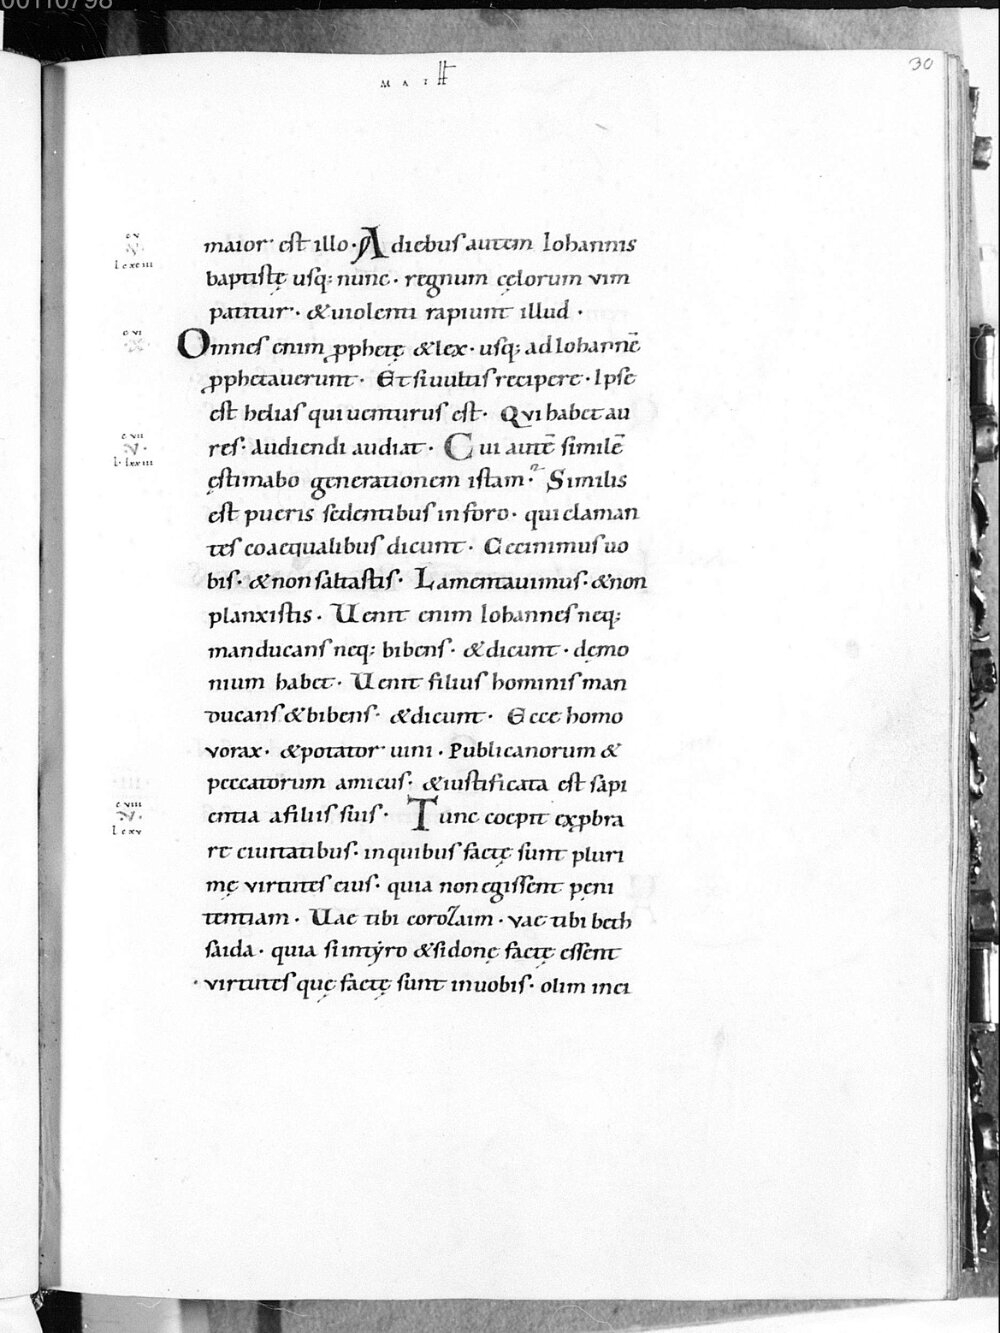 00110798
30
MAT
maior est illo · A diebus autem Iohannis
baptistę usq; nunc · regnum cęlorum vim
patitur · & uiolenti rapiunt illud ·
Omnes enim ꝓphetę & lex · usq; ad Iohannē
ꝓphetauerunt · Et si uultis recipere · Ipse
est helias qui uenturus est · Qui habet au
res · Audiendi audiat · Cui autē similē
ęstimabo generationem istam · Similis
est pueris sedentibus in foro · qui claman
tes coaequalibus dicunt · Cecinimus uo
bis · & non saltastis · Lamentauimus · & non
planxistis · Uenit enim Iohannes neq;
manducans neq; bibens · & dicunt · dęmo
nium habet · Uenit filius hominis man
ducans & bibens · & dicunt · Ecce homo
vorax · & potator uini · Publicanorum &
peccatorum amicus · & iustificata est sapi
entia a filiis suis · Tunc coepit exꝓbra
re ciuitatibus · in quibus factę sunt pluri
mę virtutes eius · quia non egissent pęni
tentiam · Uae tibi corozaim · vae tibi beth
saida · quia si in tyro & sidone factę essent
virtutes quę factę sunt in uobis · olim in ci
c v
c vi
c vii
c viii